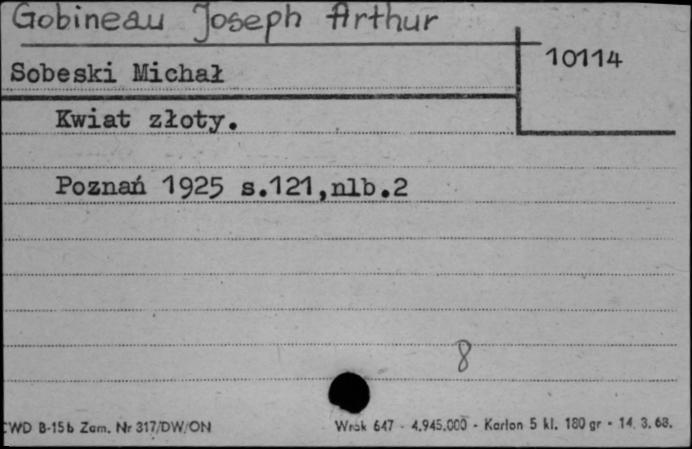 Gobineau Joseph Arthur
10114
Sobeski Michał
Kwiat złoty.
Poznań 1925 s.121,nlb.2
8
CWD B-15b Zam. Nr 317/DW/ON Wrak 647 - 4.945.000 - Karton 5 kl. 180 gr - 14. 3. 68.